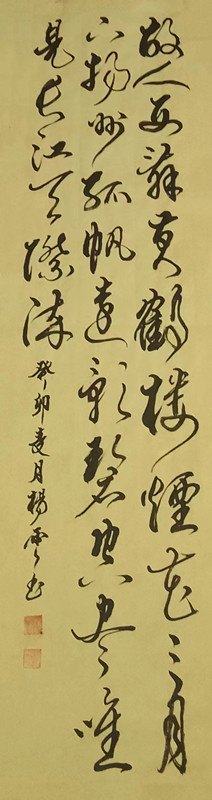 故人西辭黃鶴樓煙花三月
下揚州孤帆遠影碧空盡唯
見長江天際流
癸卯夏月楊書